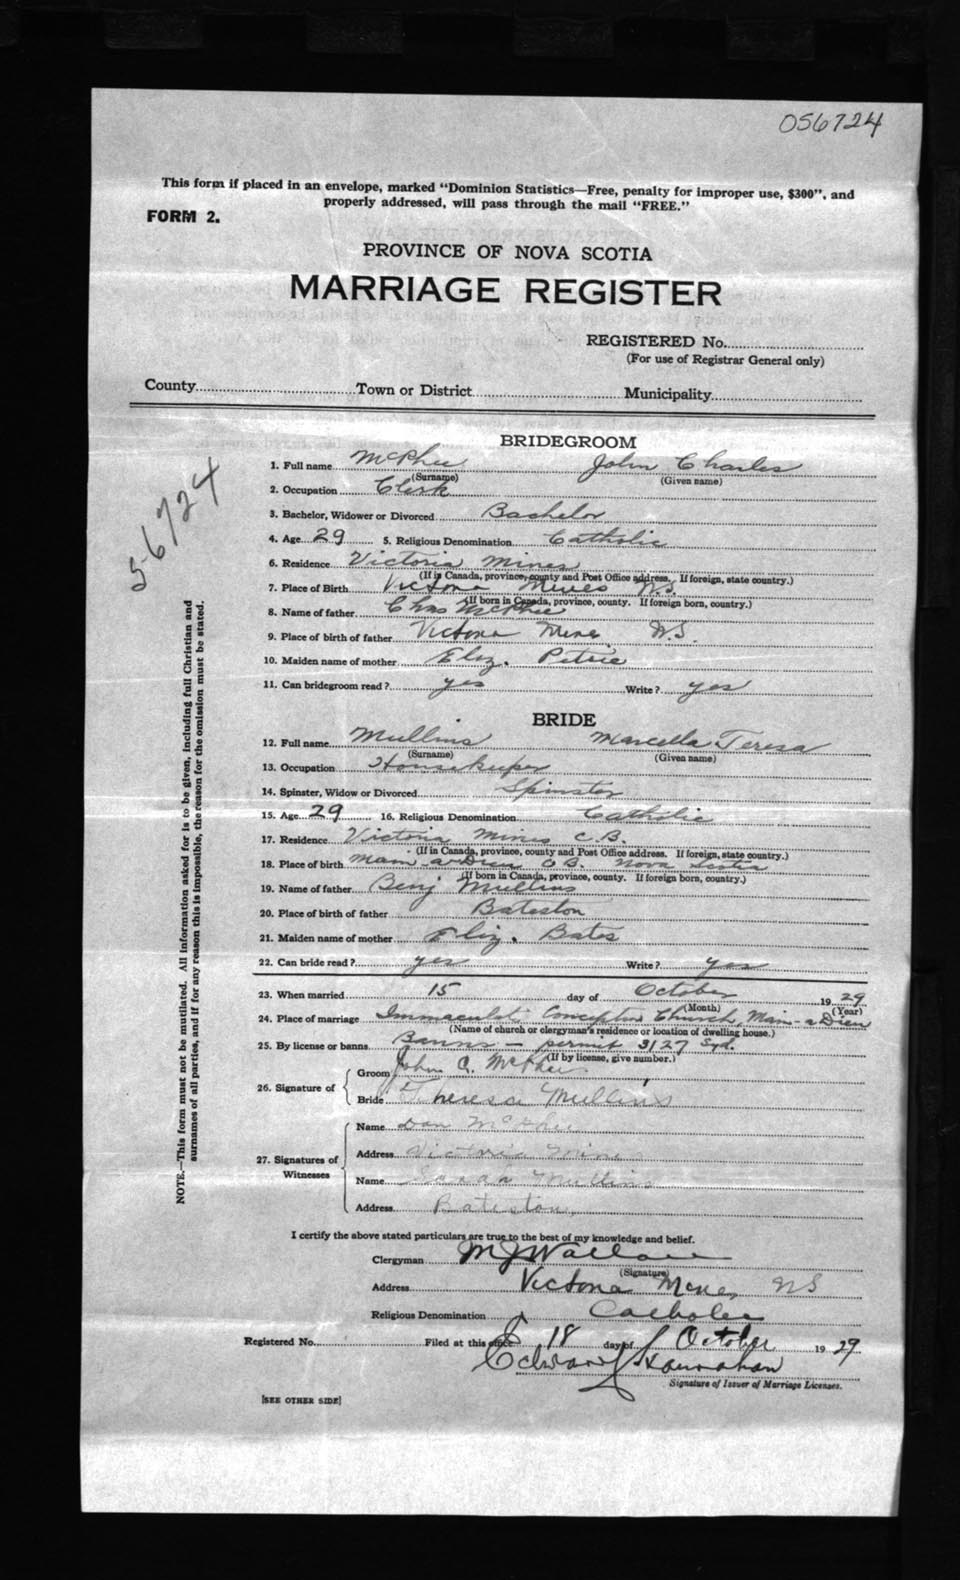 056724
This form if placed in an envelope, marked "Dominion Statistics—Free, penalty for improper use, $300", and
properly addressed, will pass through the mail "FREE."
FORM 2.
PROVINCE OF NOVA SCOTIA
MARRIAGE REGISTER
REGISTERED No.
(For use of Registrar General only)
County Town or District Municipality
56724
NOTE.—This form must not be mutilated. All information asked for is to be given, including full Christian and
surnames of all parties, and if for any reason this is impossible, the reason for the omission must be stated.
BRIDEGROOM
1. Full name McPhee John Charles
(Surname) (Given name)
2. Occupation Clerk
3. Bachelor, Widower or Divorced Bachelor
4. Age 29 5. Religious Denomination Catholic
6. Residence Victoria Mines
(If in Canada, province, county and Post Office address. If foreign, state country.)
7. Place of Birth Victoria Mines N.S.
(If born in Canada, province, county. If foreign born, country.)
8. Name of father Chas McPhee
9. Place of birth of father Victoria Mines N.S.
10. Maiden name of mother Eliz. Petrie
11. Can bridegroom read? yes Write? yes
BRIDE
12. Full name Mullins Marcella Teresa
(Surname) (Given name)
13. Occupation Housekeeper
14. Spinster, Widow or Divorced Spinster
15. Age 29 16. Religious Denomination Catholic
17. Residence Victoria Mines C.B.
(If in Canada, province, county and Post Office address. If foreign, state country.)
18. Place of birth Main-a-Dieu C.B. Nova Scotia
(If born in Canada, province, county. If foreign born, country.)
19. Name of father Benj Mullins
20. Place of birth of father Bateston
21. Maiden name of mother Eliz. Bates
22. Can bride read? yes Write? yes
23. When married 15 day of October 1929
(Month) (Year)
24. Place of marriage Immaculate Conception Church, Main-a-Dieu
(Name of church or clergyman's residence or location of dwelling house.)
25. By license or banns Banns — permit 3127 Syd.
(If by license, give number.)
26. Signature of Groom John C. McPhee
Bride Theresa Mullins
27. Signatures of Witnesses Name Dan McPhee
Address Victoria Mines
Name Sarah Mullins
Address Bateston
I certify the above stated particulars are true to the best of my knowledge and belief.
Clergyman M J Wallace
(Signature)
Address Victoria Mines NS
Religious Denomination Catholic
Registered No. Filed at this office 18 day of October 1929
Edward
Signature of Issuer of Marriage Licenses.
[SEE OTHER SIDE]